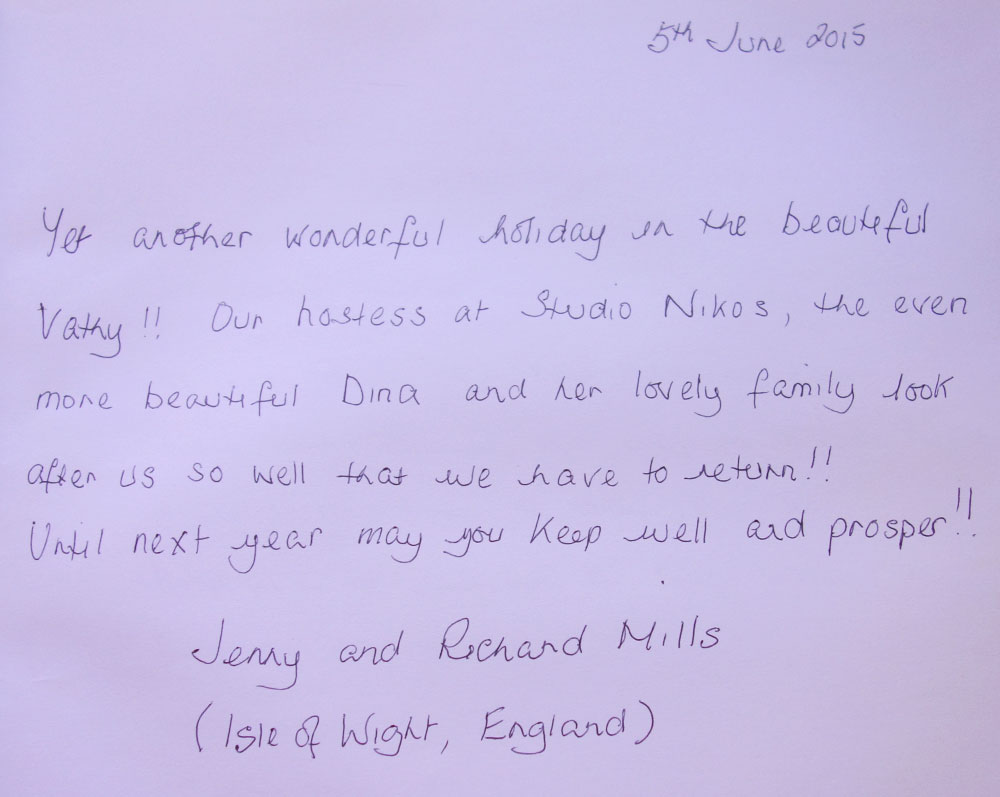 5th June 2015
Yet another wonderful holiday in the beautiful
Vathy!! Our hostess at Studio Nikos, the even
more beautiful Dina and her lovely family look
after us so well that we have to return!!
Until next year may you keep well and prosper!!
Jenny and Richard Mills
(Isle of Wight, England)